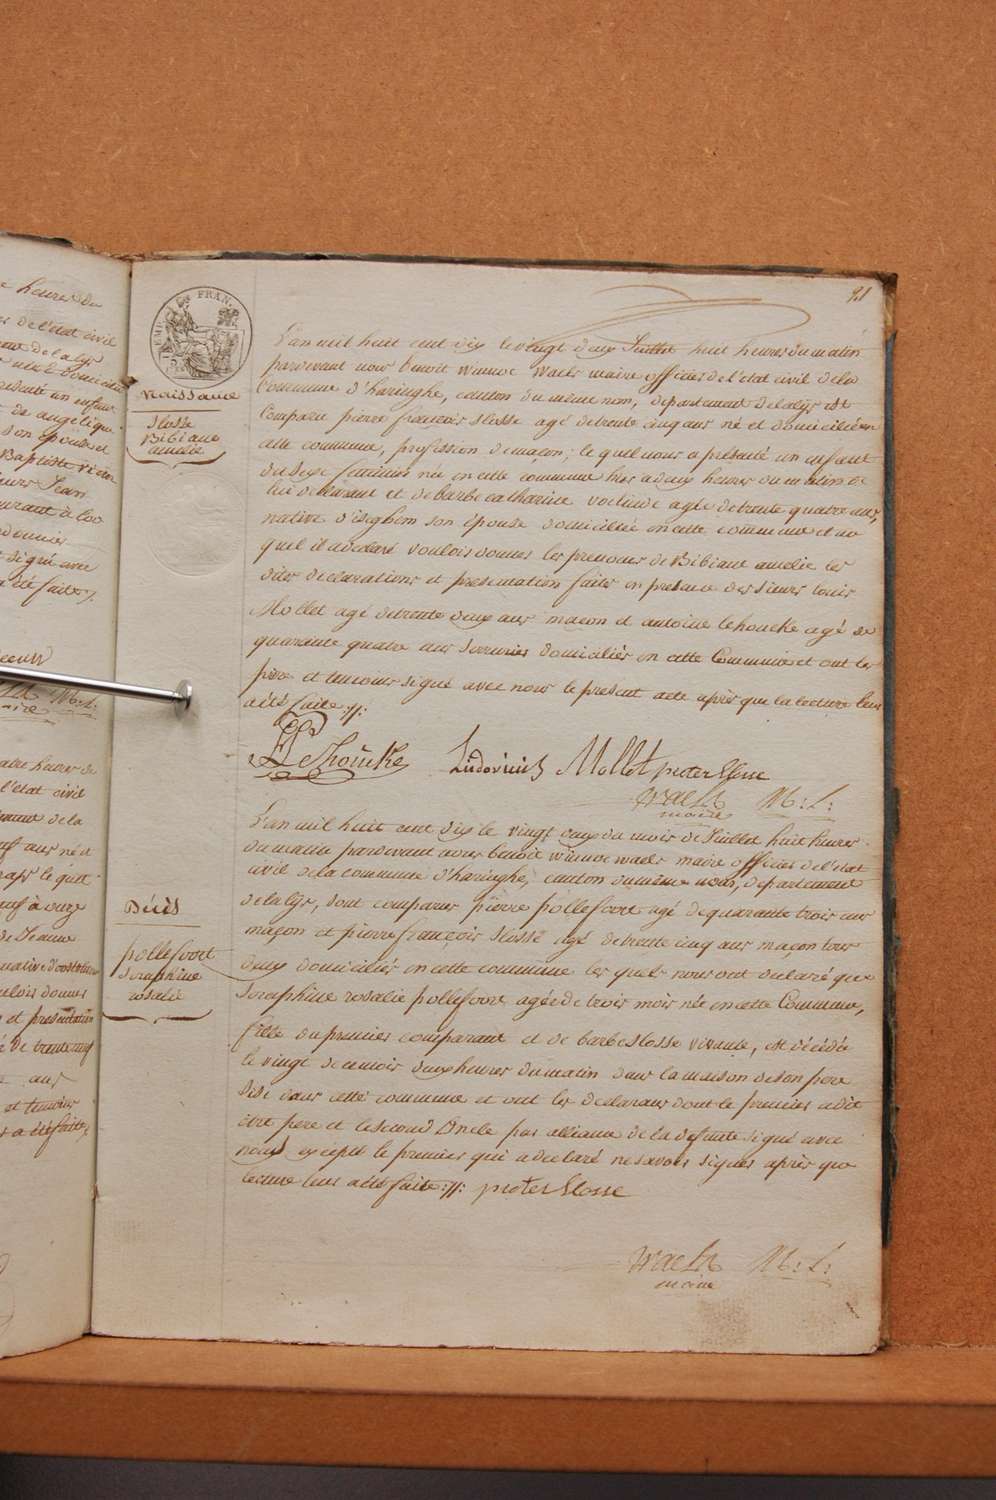 e heures du
de l'état civil
de la lys
un enfant
de angelique
son épouse et
Baptiste
Jean
a été faite
maire
heures du
l'état civil
de la
ans né à
le quel
à onze
de Jeanne
native d'oostvleteren
vouloir donner
et présentation
de trente neuf
ans
et temoins
a été faite
91
TIMBRE EMP. FRAN.
Naissance
Slosse
Bibiane
amelie
L'an mil huit cent dix le vingt deux Juillet huit heures du matin
pardevant nous benoit winnoc waels maire officier de l'état civil de la
Commune d'haringhe, canton du même nom, departement de la lys est
Comparu pierre françois slosse agé de trente cinq ans né et domicilié en
cette commune, profession de maçon; le quel nous a présenté un enfant
du sexe feminin née en cette commune hier a deux heures du matin de
lui declarant et de barbe catharine agée de trente quatre ans,
native d'iseghem son épouse domiciliée en cette commune et au
quel il a declaré vouloir donner les prenoms de Bibiane amelie les
dites declarations et presentation faites en presence des sieurs louis
Mollet agé de trente deux ans maçon et antoine lehoucke agé de
quarante quatre ans serrurier domiciliés en cette Commune et ont les
père et temoins signé avec nous le present acte après que la lecture leur
a été faite .//.
Lehoucke Ludovicus Mollet pieter Slosse
Waels M: L:
maire
Décès
pollefoort
seraphine
rosalie
L'an mil huit cent dix le vingt deux du mois de Juillet huit heures
du matin pardevant nous benoit winnoc waels maire officier de l'état
civil de la commune d'haringhe, canton du même nom, departement
de la lys, sont comparus pierre pollefoort agé de quarante trois ans
maçon et pierre françois slosse agé de trente cinq ans maçon tous
deux domiciliés en cette commune les quels nous ont declaré que
Seraphine rosalie pollefoort agée de trois mois née en cette Commune,
fille du premier comparant et de barbe slosse vivante, est décédée
le vingt de ce mois deux heures du matin dans la maison de son père
sise dans cette commune et ont les declarans dont le premier a dit
être père et le second Oncle par alliance de la defunte signé avec
nous excepté le premier qui a declaré ne savoir signer après que
lecture leur a été faite .//. pieter Slosse
Waels M: L:
maire